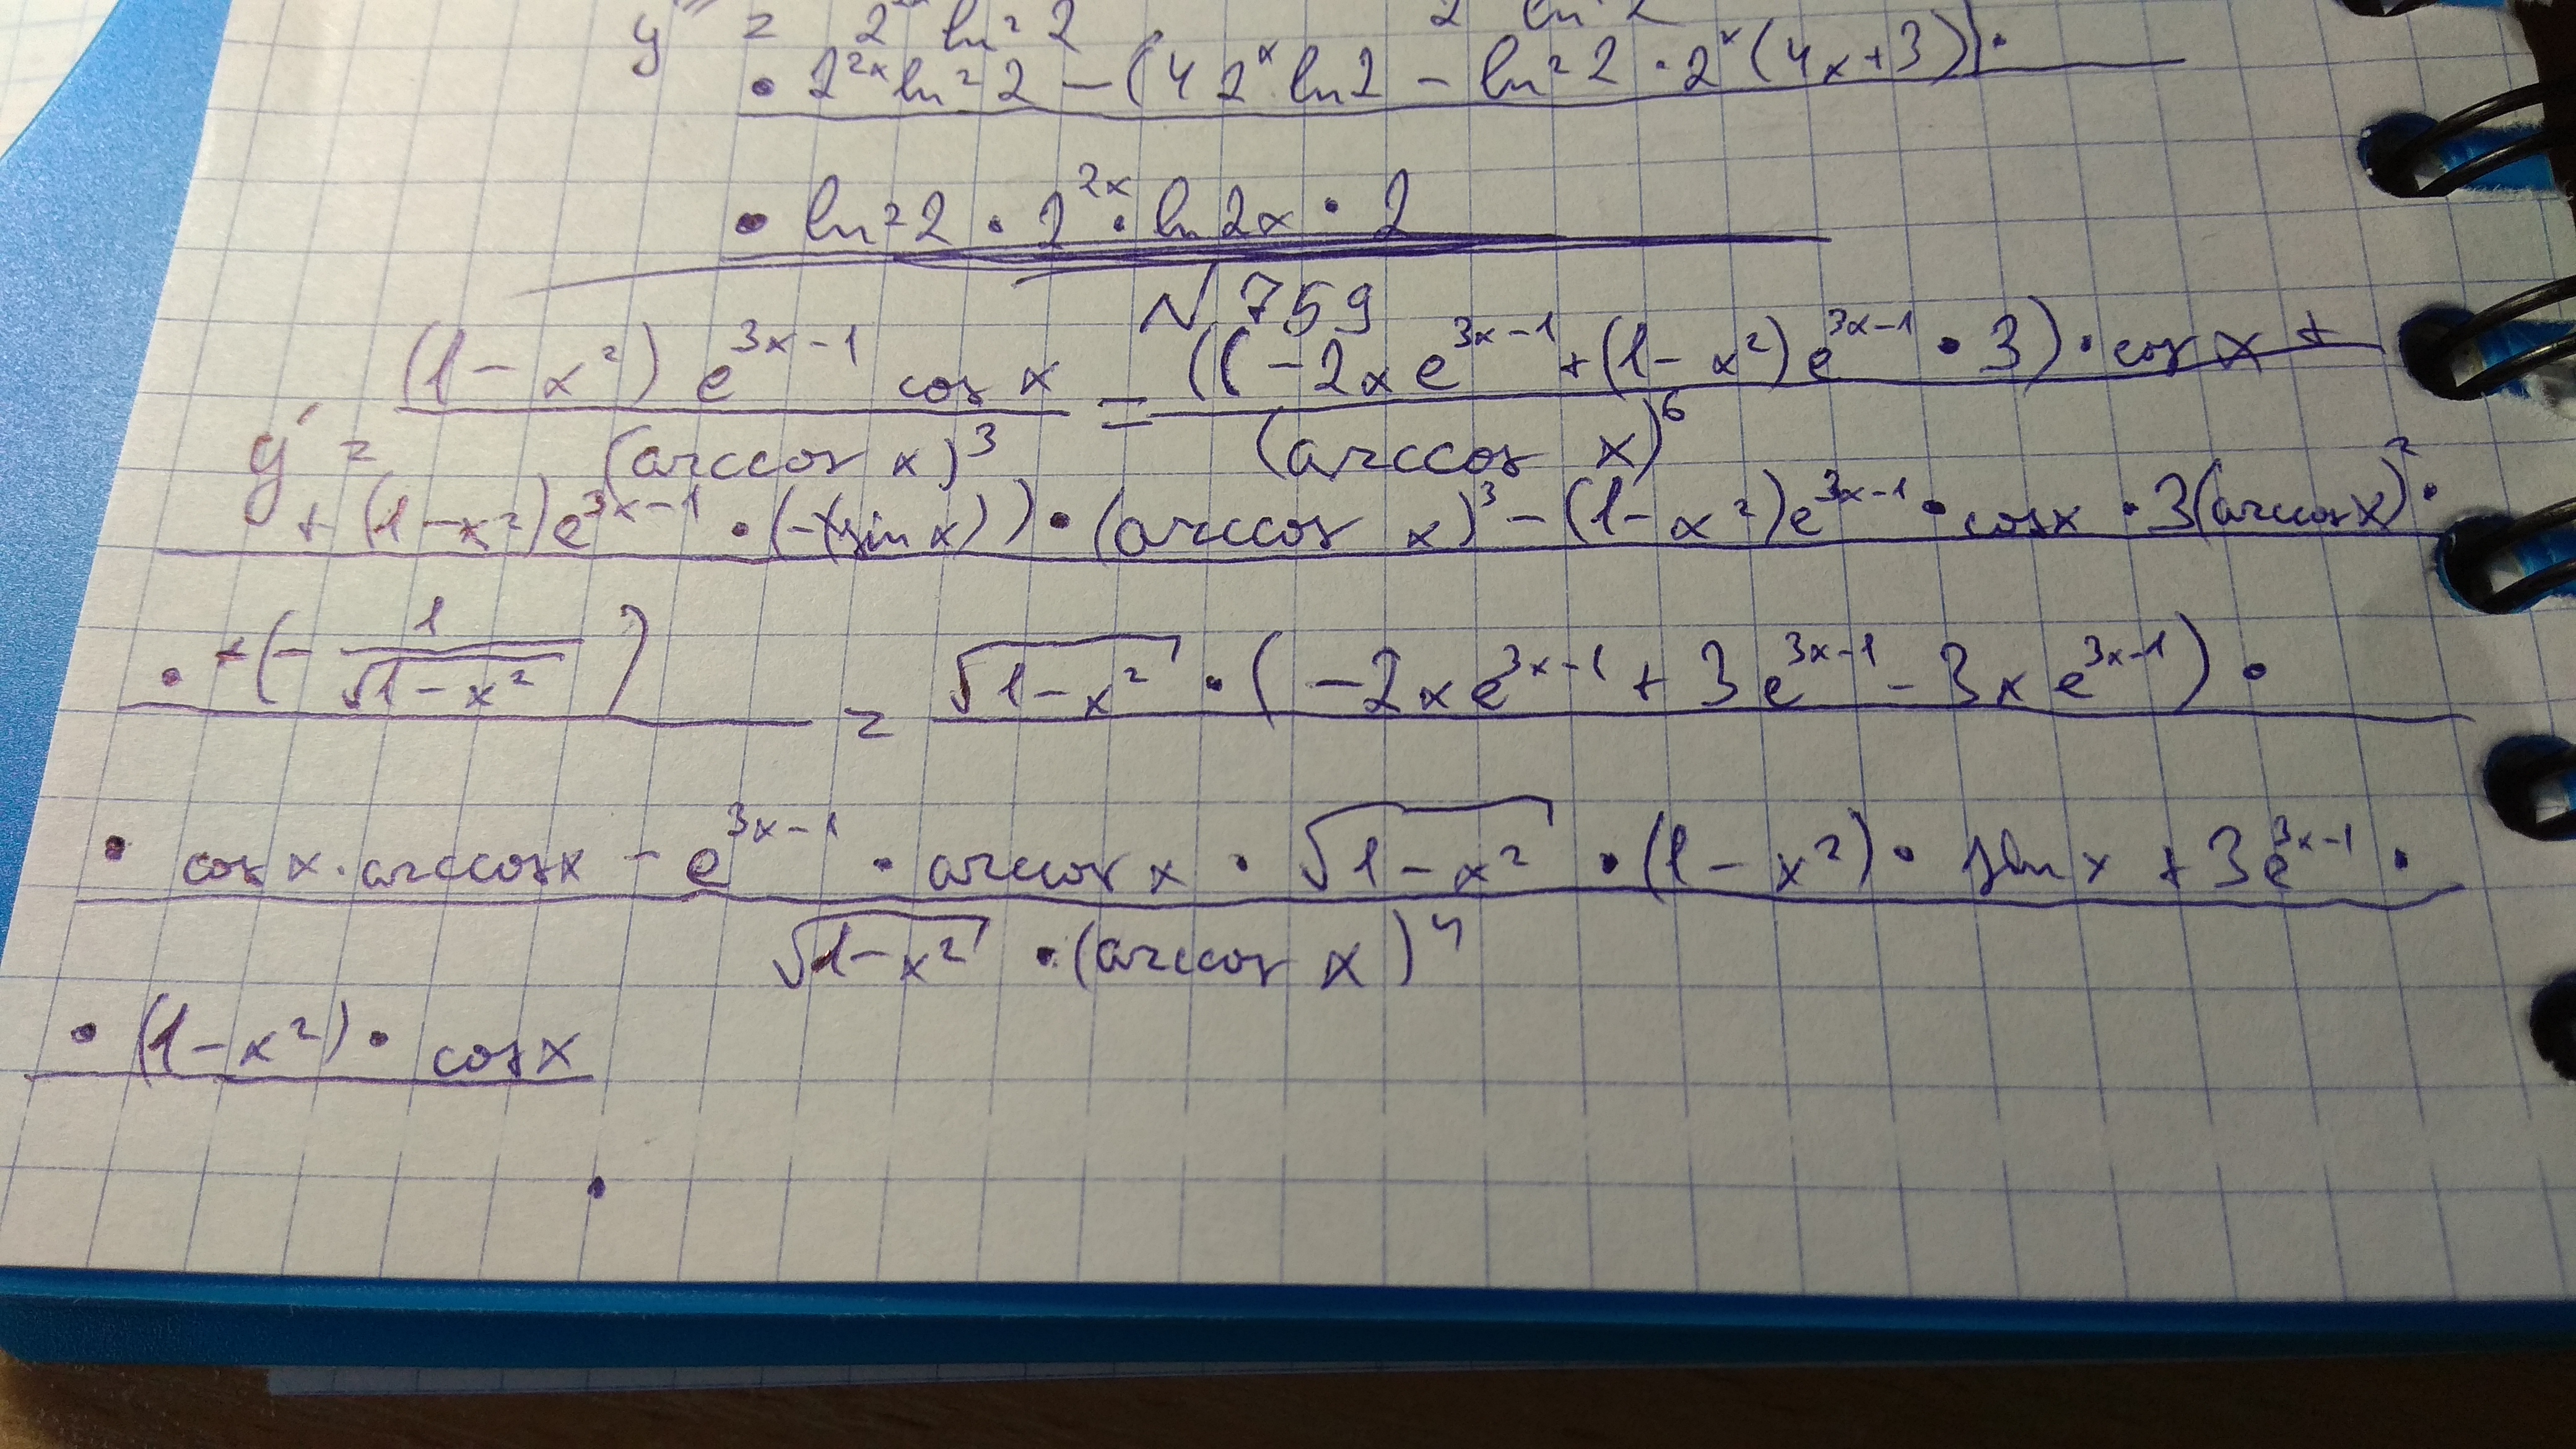 y''' = 2 ln² 2 2 ln 2
• 2²ˣ ln² 2 − (4 2ˣ ln 2 − ln² 2 · 2ˣ (4x+3)) •
• ln² 2 · 2²ˣ · ln 2x · 2
N 759
y' = (1 − x²) e^(3x−1) cos x / (arccos x)³ = ((−2x e^(3x−1) + (1 − x²) e^(3x−1) • 3) • cos x + / (arccos x)⁶
+ (1 − x²) e^(3x−1) • (−(sin x)) • (arccos x)³ − (1 − x²) e^(3x−1) • cos x • 3(arccos x)² •
• (− 1/√(1 − x²)) = √(1 − x²) • (−2x e^(3x−1) + 3e^(3x−1) − 3x e^(3x−1)) •
• cos x · arccos x − e^(3x−1) • arccos x • √(1 − x²) • (1 − x²) • sin x + 3e^(3x−1) •
√(1 − x²) • (arccos x)⁴
• (1 − x²) • cos x